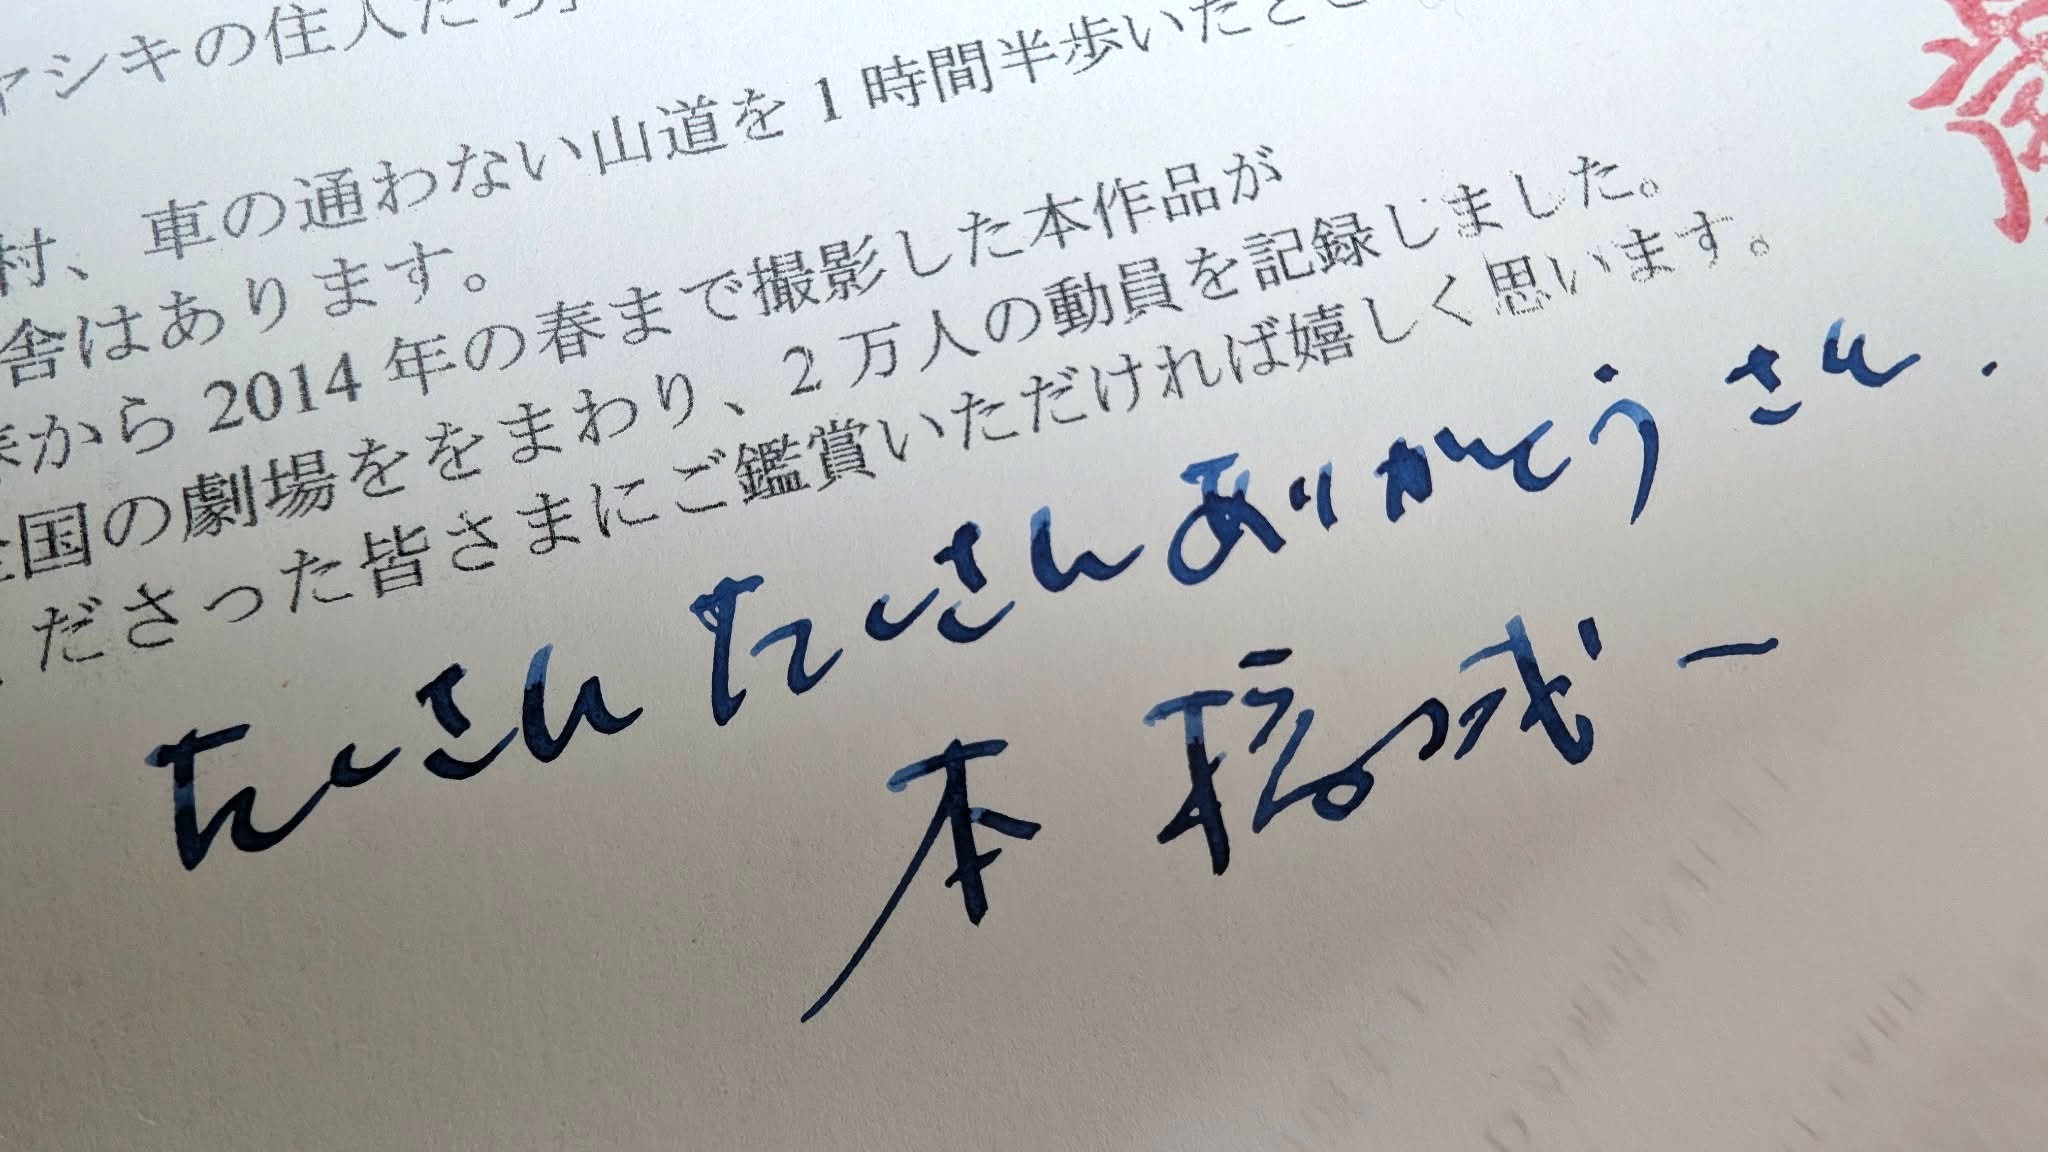 ァシキの住人たち」
村、車の通わない山道を1時間半歩いたとこ
舎はあります。
春から2014年の春まで撮影した本作品が
全国の劇場ををまわり、2万人の動員を記録しました。
ださった皆さまにご鑑賞いただければ嬉しく思います。
たくさんたくさんありがとうさん.
本橋成一